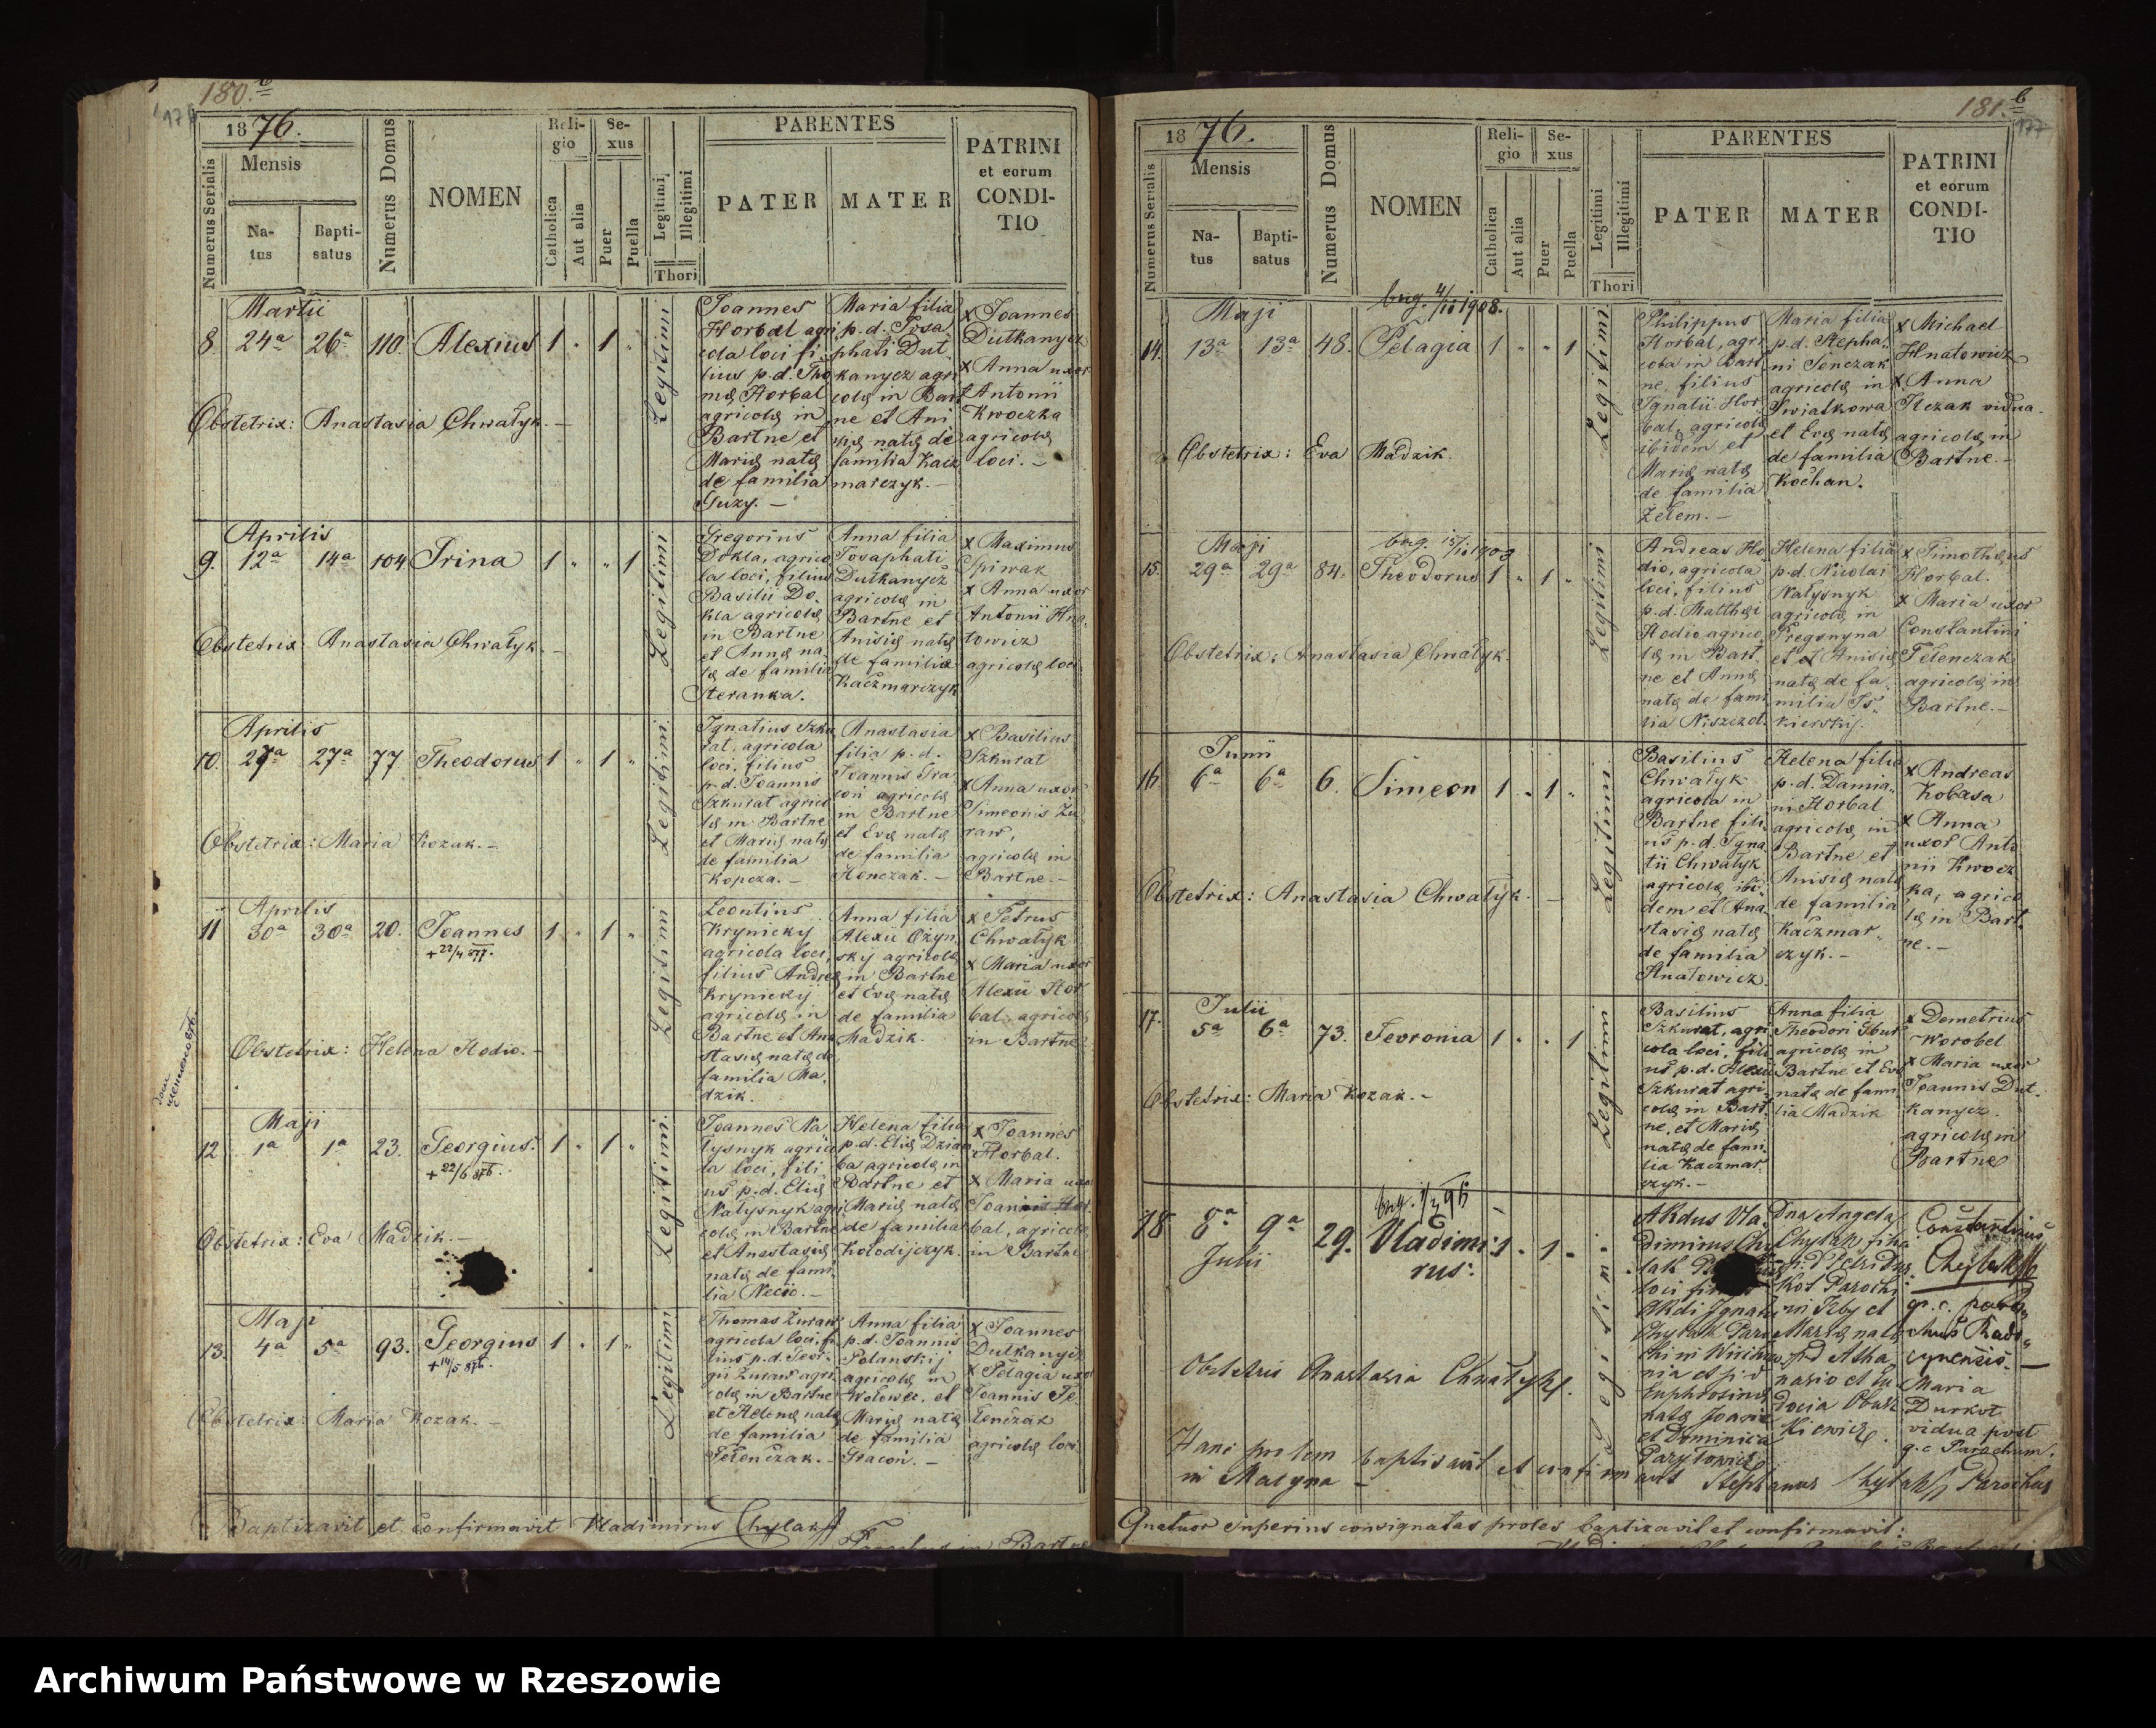 180.b
1876.
Numerus Serialis
Mensis
Natus
Baptisatus
Numerus Domus
NOMEN
Religio
Catholica
Aut alia
Sexus
Puer
Puella
Legitimi
Illegitimi
Thori
PARENTES
PATER
MATER
PATRINI
et eorum
CONDI-
TIO
Martii
8. 24a 26a 110. Alexius 1 " 1 "
Legitimi
Joannes
Horbal agri
cola loci fi
lius p.d. Tho
mæ Horbal
agricolæ in
Bartne et
Mariæ natæ
de familia
Guzy. –
Maria filia
p.d. Josa
phati Dut
kanycz agri
colæ in Bart
ne et Ani
siæ natæ de
familia Kacz
marczyk. –
x Joannes
Dutkanycz
x Anna uxor
Antonii
Kwoczka
agricolæ
loci. –
Obstetrix: Anastasia Chwałyk. –
Aprilis
9. 12a 14a 104 Irina 1 " " 1
Legitimi
Gregorius
Dokla, agrico
la loci, filius
Basilii Do-
kla agricolæ
in Bartne
et Annæ na
tæ de familia
Steranka.
Anna filia
Josaphati
Dutkanycz
agricolæ in
Bartne et
Anisiæ natæ
de familia
Kaczmarczyk
x Maximus
Spiwak
x Anna uxor
Antonii Hna
towicz
agricolæ loci
Obstetrix: Anastasia Chwałyk. –
Aprilis
10. 27a 27a 77. Theodorus 1 " 1 "
Legitimi
Ignatius Szku
rat, agricola
loci, filius
p.d. Joannis
Szkurat agrico
læ in Bartne
et Mariæ natæ
de familia
Kopcza. –
Anastasia
filia p.d.
Joannis Gra
con agricolæ
in Bartne
et Evæ natæ
de familia
Honczak. –
x Basilius
Szkurat
x Anna uxor
Simeonis Żu
raw,
agricolæ in
Bartne. –
Obstetrix: Maria Kozak. –
Aprilis
11 30a 30a 20. Joannes 1 " 1 "
+ 22/4 877.
Legitimi
Leontius
Krynicky
agricola loci,
filius Andreæ
Krynickij
agricolæ in
Bartne et Ana
stasiæ natæ de
familia Ma-
dzik.
Anna filia
Alexii Ożyn
skij agricolæ
in Bartne
et Evæ natæ
de familia
Madzik.
x Petrus
Chwałyk
x Maria uxor
Alexii Hor
bal, agricolæ
in Bartne
Obstetrix: Helena Hodio. –
Maji
12 1a 1a 23. Georgius. 1 " 1 "
+ 22/6 876.
Legitimi
Joannes Na
tysnyk agrico
la loci, fili
us p.d. Eliæ
Natysnyk agri
colæ in Bartne
et Anastasiæ
natæ de fami
lia Necio. –
Helena filia
p.d. Eliæ Dziam
ba agricolæ in
Bartne et
Mariæ natæ
de familia
Kołodijczyk.
x Joannes
Horbal.
x Maria uxor
Joannis Hor
bal, agricolæ
in Bartne
Obstetrix: Eva Madzik. –
Maji
13. 4a 5a 93. Georgius 1 " 1 "
+ 14/5 876.
Legitimi
Thomas Żuraw
agricola loci, fi
lius p.d. Geor-
gii Żuraw agri
colæ in Bartne
et Helenæ natæ
de familia
Felenczak. –
Anna filia
p.d. Joannis
Polanskij
agricolæ in
Wołowec, et
Mariæ natæ
de familia
Gracon. –
x Joannes
Dutkanycz
x Pelagia uxor
Joannis Fe
lenczak
agricolæ loci
Obstetrix: Maria Kozak. –
Baptizavit et confirmavit Vladimirus Chylak
181.b
177
1876.
Numerus Serialis
Mensis
Natus
Baptisatus
Numerus Domus
NOMEN
Religio
Catholica
Aut alia
Sexus
Puer
Puella
Legitimi
Illegitimi
Thori
PARENTES
PATER
MATER
PATRINI
et eorum
CONDI-
TIO
Maji
14. 13a 13a 48. Pelagia 1 " " 1
Legitimi
Philippus
Horbal, agri
cola in Bart
ne, filius
Ignatii Hor
bal, agricolæ
ibidem et
Mariæ natæ
de familia
Żelem. –
Maria filia
p.d. Stepha-
ni Senczak
agricolæ in
Swiatkowa
et Evæ natæ
de familia
Kochan.
x Michael
Hnatowicz
x Anna
Stezak vidua
agricolæ in
Bartne. –
Obstetrix: Eva Madzik.
Maji
15. 29a 29a 84. Theodorus 1 " 1 "
Legitimi
Andreas Ho
dio, agricola
loci, filius
p.d. Matthæi
Hodio agrico
læ in Bart
ne et Annæ
natæ de fami
lia Niszczot.
Helena filia
p.d. Nicolai
Natysnyk
agricolæ in
Pregonyna
et Anisiæ
natæ de fa-
milia Is-
kierskij.
x Timothæus
Horbal.
x Maria uxor
Constantini
Felenczak
agricolæ in
Bartne. –
Obstetrix: Anastasia Chwałyk.
Junii
16. 6a 6a 6. Simeon 1 " 1 "
Legitimi
Basilius
Chwałyk
agricola in
Bartne fili
us p.d. Igna
tii Chwałyk
agricolæ ibi-
dem et Ana-
stasiæ natæ
de familia
Hnatowicz.
Helena filia
p.d. Damia-
ni Horbal
agricolæ, in
Bartne et
Anisiæ natæ
de familia
Kaczmar-
czyk. –
x Andreas
Kobasa
x Anna
uxor Anto
nii Kwocz
ka, agrico
læ in Bart-
ne. –
Obstetrix: Anastasia Chwałyk. –
Julii
17. 5a 6a 73. Fevronia 1 " " 1
Legitimi
Basilius
Szkurat, agri
cola loci, fili
us p.d. Alexii
Szkurat agri-
colæ in Bart
ne, et Mariæ
natæ de fami
lia Kaczmar
czyk. –
Anna filia
Theodori Sbur
agricolæ in
Bartne et Evæ
natæ de fami
lia Madzik
x Demetrius
Worobel
x Maria uxor
Joannis Dut
kanycz.
agricolæ in
Bartne
Obstetrix: Maria Kozak. –
18 8a 9a 29. Vladimi- 1 " 1 "
Julii
rus.
Legitimi
Dna Angela
Constantinus
Chylak
Maria
Durkot
vidua post
g.c. Parochum.
Obstetrix Anastasia Chwałyk.
Hanc prolem baptisavit et confirmavit Stephanus Chylak Parochus
in Macyna –
Quatuor superius consignatas proles baptizavit et confirmavit:
Archiwum Państwowe w Rzeszowie